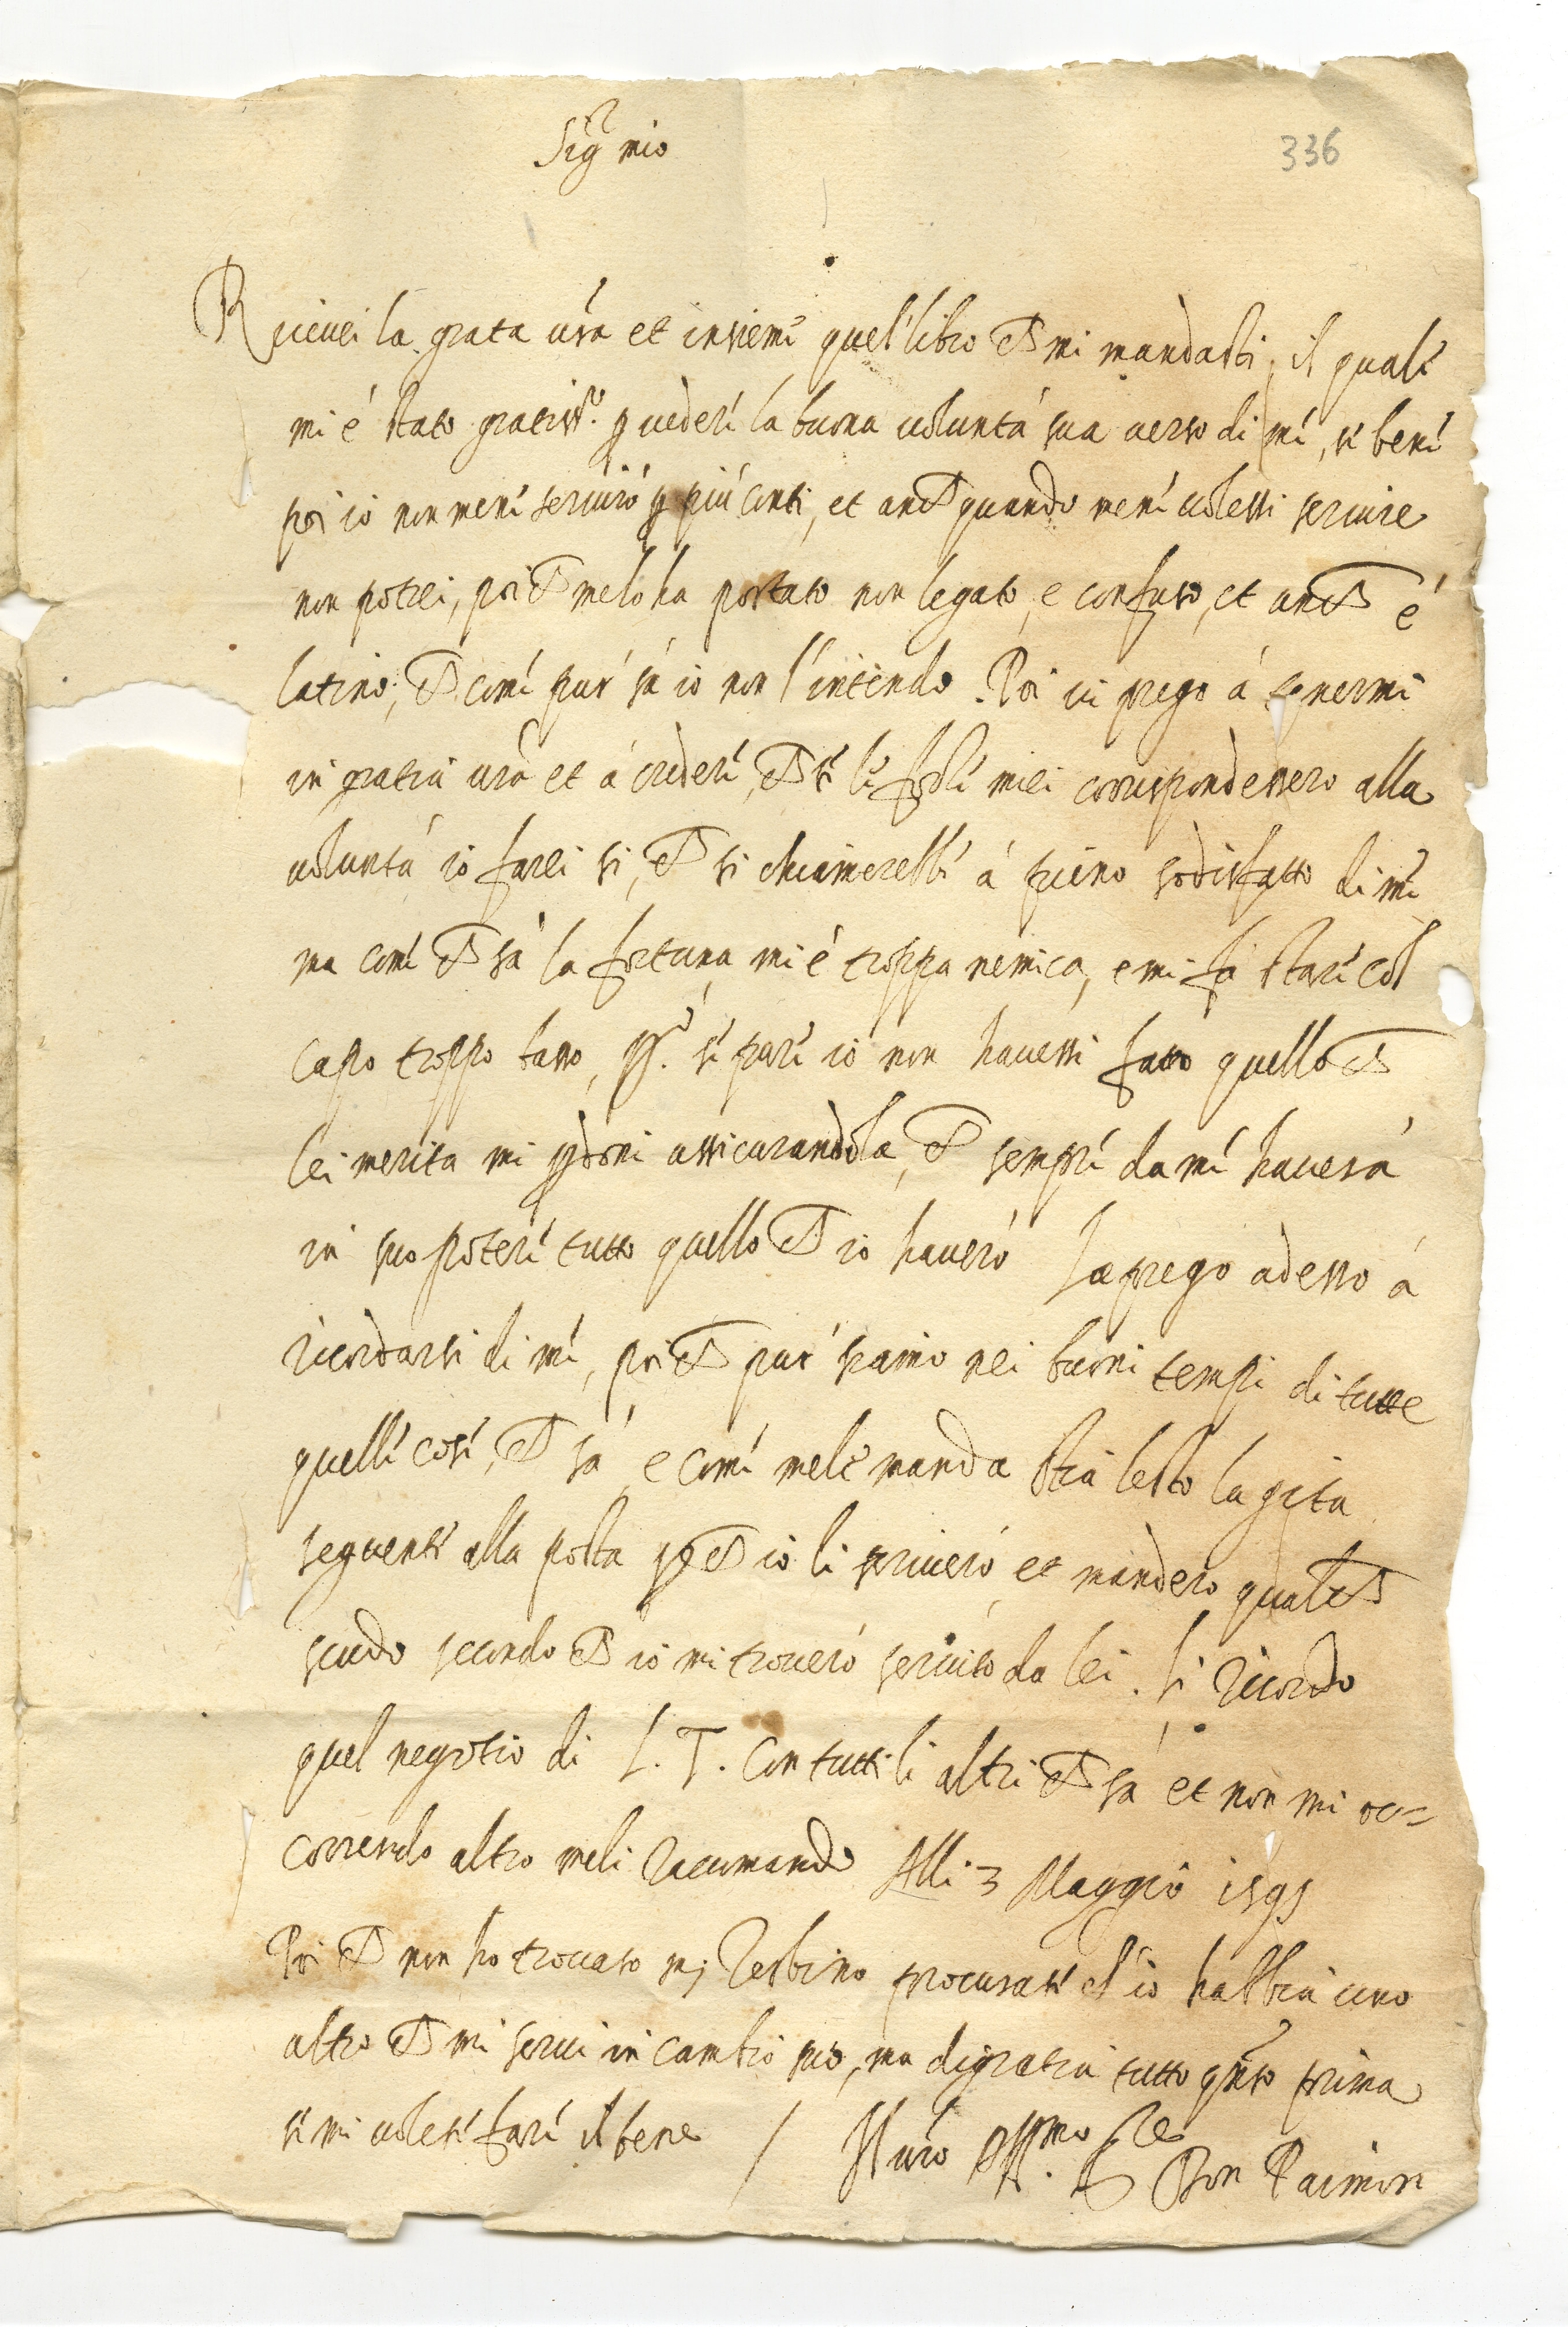 Sig.r mio
336
Riceuei la grata ura et insieme quel libro che mi mandasti, il quale
mi é stato gratiss.o p uedere la buona uoluntá sua uerso di me, se bene
poi io non mene seruiró p piú conti, et anche quando mene uolessi seruire
non potrei, poi che melo ha portato non legato, e confuso, et anche é
latino, che come pur sá io non l'intendo. Poi ui prego á tenermi
in gratia ura et á credere, che se le forze miei corrispondessero alla
uoluntá io farei si, che si chiamerebbe á pieno sodisfatto di me
ma come che sá la fortuna mi é troppa nemica, e mi fá stare col
capo troppo basso, se pare io non hauessi fatto quello che
lei merita mi pdoni assicurandola, che sempre da me hauerá
in suo potere tutto quello che io haueró la prego adesso á
ricordarsi di me, poi che pur siamo nei buoni tempi di tutte
quelle cose, che sá, e come mele manda stia lesto la gita
seguente alla posta p che io li scriueró, et manderó qualche
scudo secondo che io mi troueró seruito da lei. li ricordo
quel negotio di L. T. con tutti li altri che sá et non mi oc=
correndo altro meli racomando Alli 3 Maggio 1595
Poi che non ho trouato procurate ch'io habbia uno
altro che mi serui in cambio suo, ma digratia tutto qnto prima
se mi uolete fare il bene / Il uro Aff.mo Don Raimon